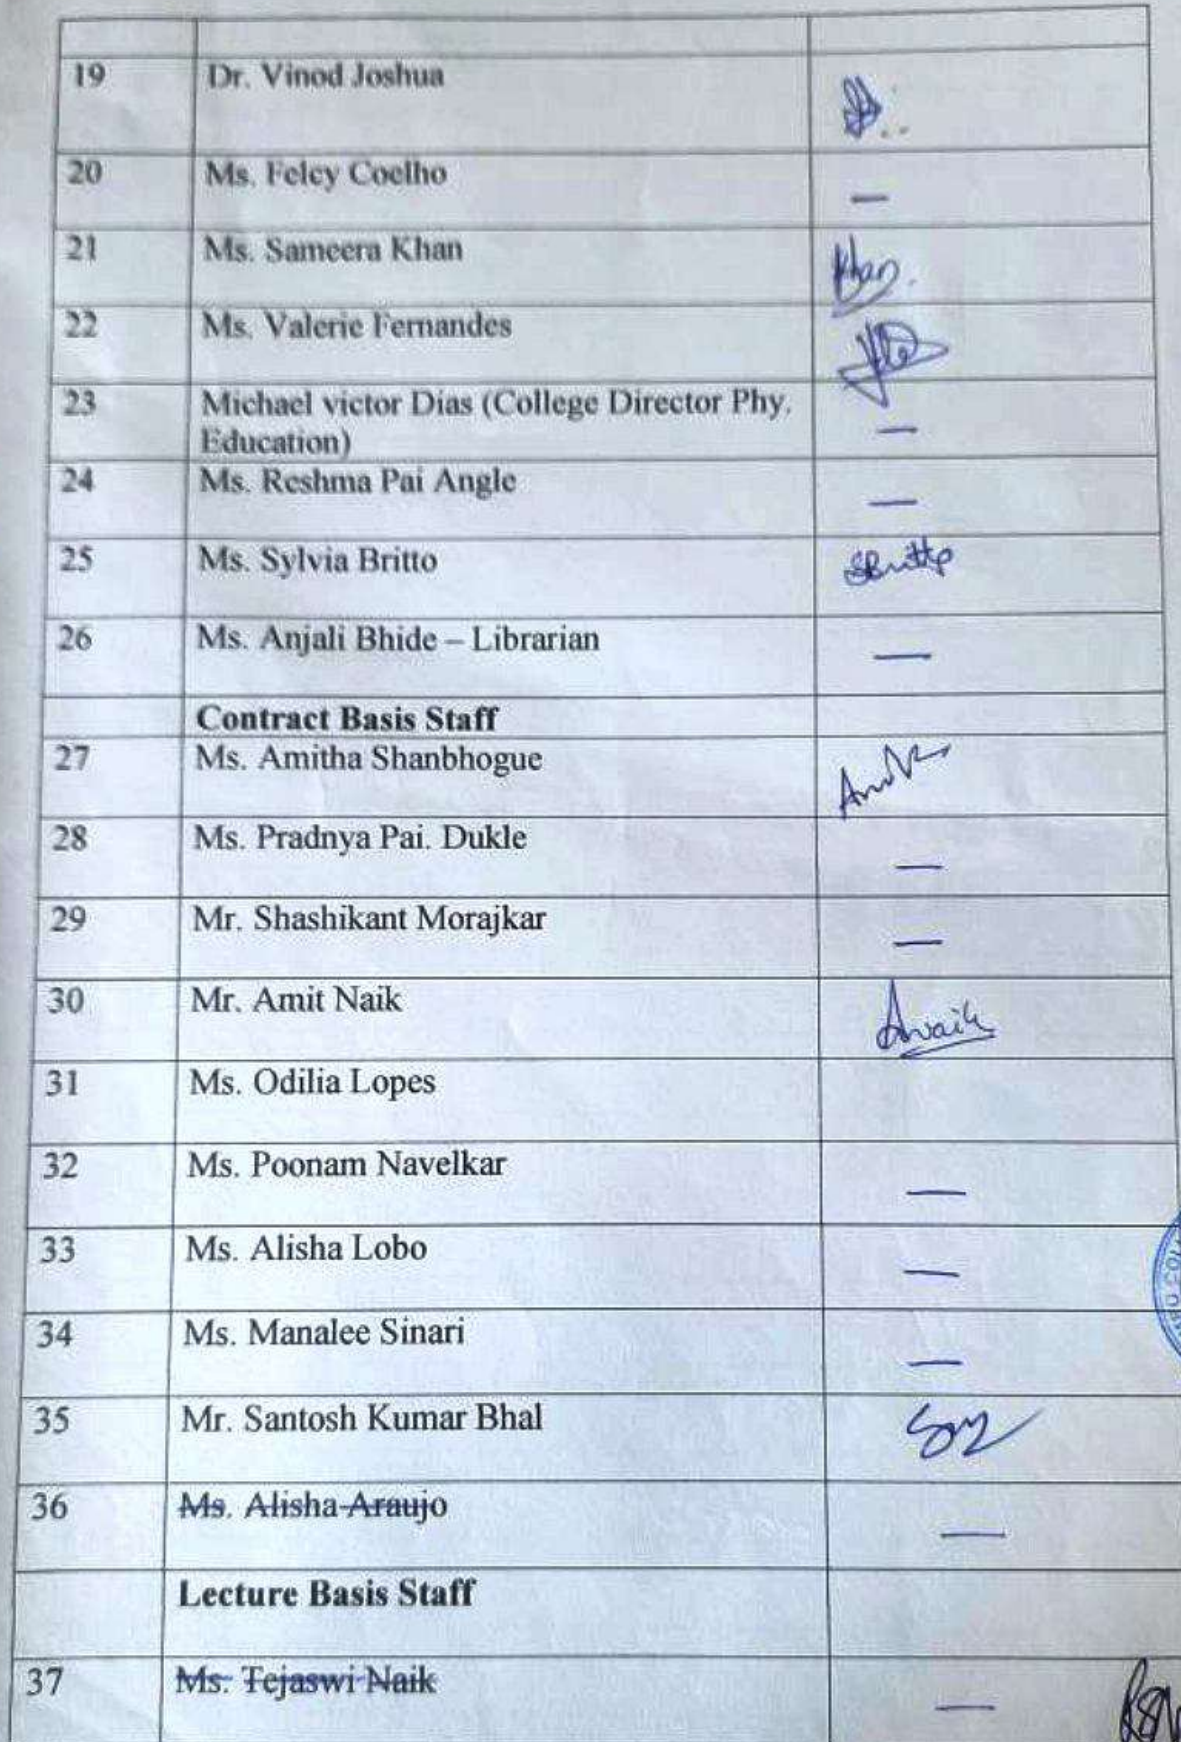 19 Dr. Vinod Joshua
20 Ms. Feley Coelho —
21 Ms. Sameera Khan Khan.
22 Ms. Valerie Fernandes
23 Michael victor Dias (College Director Phy.
Education) —
24 Ms. Reshma Pai Angle —
25 Ms. Sylvia Britto SBritto
26 Ms. Anjali Bhide – Librarian —
Contract Basis Staff
27 Ms. Amitha Shanbhogue
28 Ms. Pradnya Pai. Dukle —
29 Mr. Shashikant Morajkar —
30 Mr. Amit Naik ANaik
31 Ms. Odilia Lopes
32 Ms. Poonam Navelkar —
33 Ms. Alisha Lobo —
34 Ms. Manalee Sinari —
35 Mr. Santosh Kumar Bhal
36 Ms. Alisha Araujo —
Lecture Basis Staff
37 Ms. Tejaswi Naik —